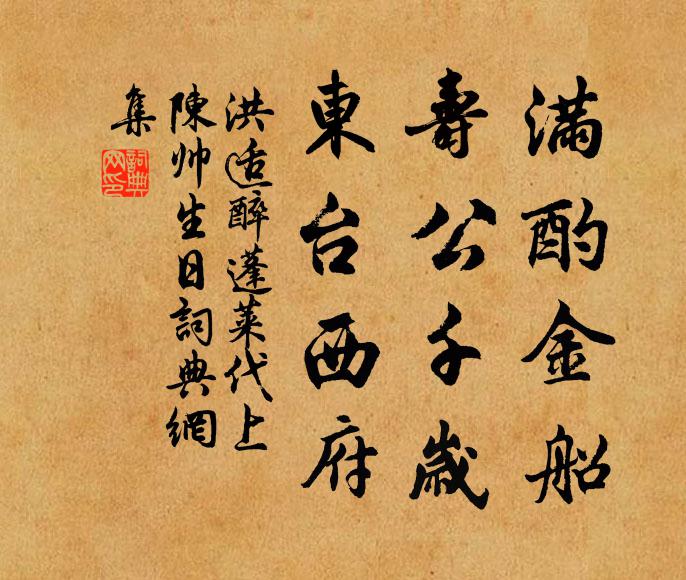 满酌金船
壽公千歲
東台西府
洪适醉蓬萊代上
陳帅生日詞典網
集
詞典
网印